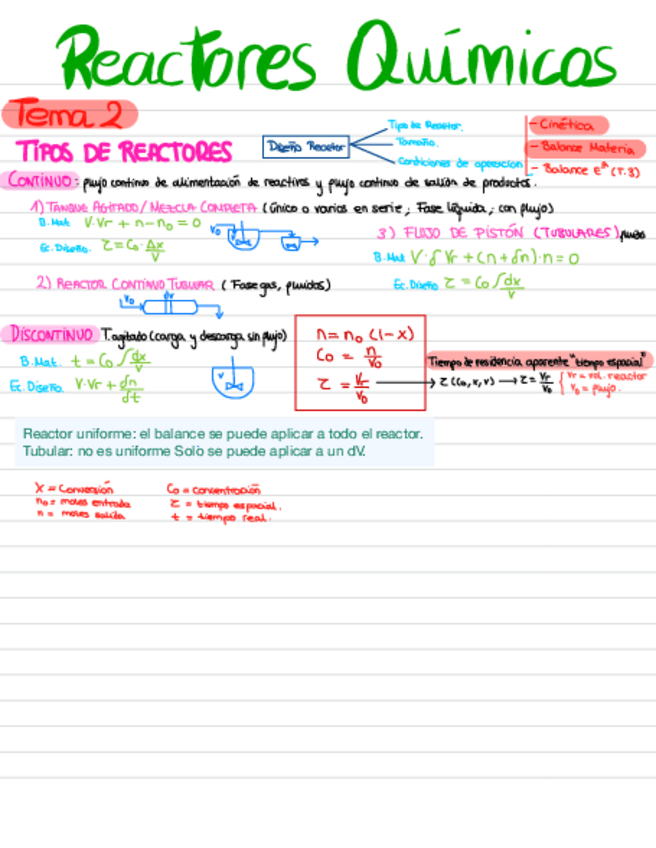 Reactores Químicos
Tema 2
TIPOS DE REACTORES
Diseño Reactor
Tipo de Reactor.
Tamaño.
Condiciones de operación
- Cinética
- Balance Materia
- Balance eª (T.3)
CONTINUO: flujo continuo de alimentación de reactivos y flujo continuo de salida de productos.
1) TANQUE AGITADO / MEZCLA COMPLETA (único o varios en serie; Fase líquida; con flujo)
B. Mat. V·Vr + n - n₀ = 0
Ec. Diseño. τ = C₀ · Δx/V
V₀
V
3) FLUJO DE PISTÓN (TUBULARES)
B. Mat V·δVr + (n + δn)·n = 0
Ec. Diseño τ = C₀ ∫ dx/V
2) REACTOR CONTINUO TUBULAR (Fase gas, fluidos)
V₀
dV
DISCONTINUO T. agitado (carga y descarga sin flujo)
B. Mat. t = C₀ ∫ dx/V
Ec. Diseño. V·Vr + δn/δt
V
n = n₀ (1 - x)
C₀ = n/V₀
τ = Vr/V₀
Tiempo de residencia aparente "tiempo espacial"
→ τ (C₀, x, v) → τ = Vr/V₀ { Vr = vol. reactor
V₀ = flujo.
Reactor uniforme: el balance se puede aplicar a todo el reactor.
Tubular: no es uniforme Solo se puede aplicar a un dV.
X = Conversión
n₀ = moles entrada
n = moles salida
C₀ = concentración
τ = tiempo espacial.
t = tiempo real.